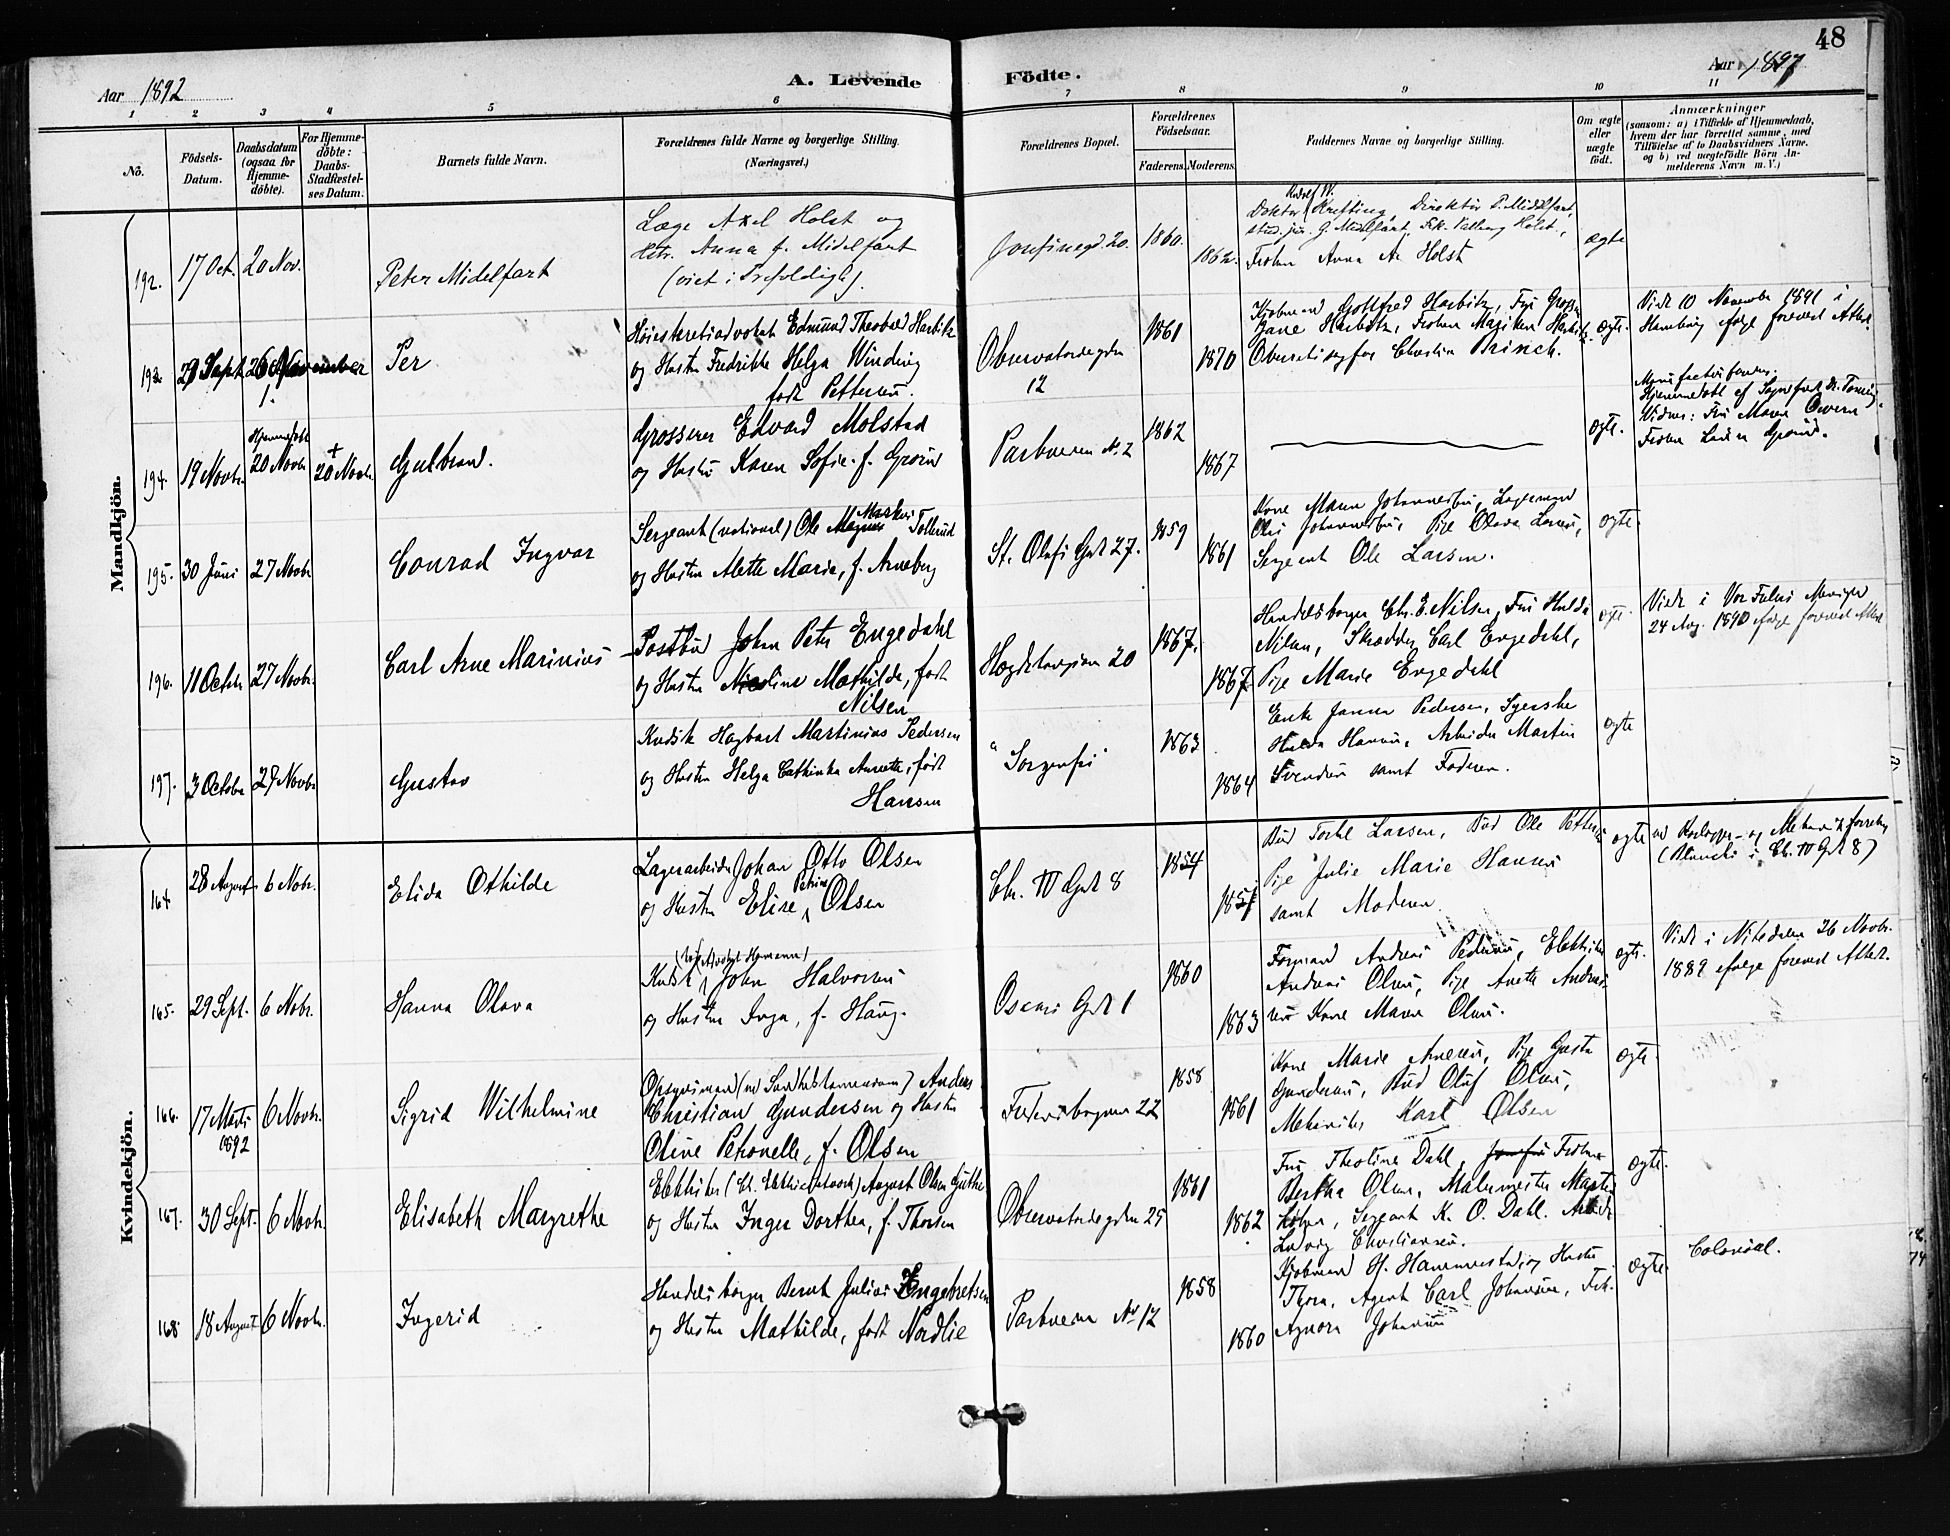 48
Aar 1892
A. Levende Födte.
Aar 1897
1 2 3 4 5 6 7 8 9 10 11
No.
Födsels-
Datum.
Daabsdatum
(ogsaa for
Hjemme-
döbte).
For Hjemme-
döbte:
Daabs-
Stadfæstel-
ses Datum.
Barnets fulde Navn.
Forældrenes fulde Navne og borgerlige Stilling.
(Næringsvei.)
Forældrenes Bopæl.
Forældrenes
Födselsaar.
Faderens. Moderens.
Faddernes Navne og borgerlige Stilling.
Om ægte
eller
uægte
födt.
Anmærkninger
(saasom: a) i Tilfælde af Hjemmedaab,
hvem der har forrettet samme, med
Tilföielse af to Daabsvidners Navne,
og b) ved uægtefödte Börn An-
melderens Navn m. V.)
Mandkjön.
192. 17 Oct. 20 Nov.
Peter Midelfart
Læge Axel Holst og
Hstr. Anna f. Midelfart
(viet i Trefoldigh).
Josefinegd. 20.
1860.
Doktor Krefting, Direktör P. Midelfart,
stud. jur. G. Midelfart, Frk. Valborg Holst,
Fröken Anna A. Holst
ægte
193. 29 Sept. 26 November
Per
Höiesteretsadvokat Edmund Theobald Harbitz
og Hustru Fredrikke Helga Winding
födt Pettersen.
Observatoriegden
12
1861
1870
Kjöbmand Gottfred Harbitz, Fru
Jane Harbitz, Fröken Harbitz
Overretssagförer Christian Brinch.
ægte.
Viet 10 November 1891 i
Hamburg ifölge forevist Attest.
194. 19 Novbr.
Hjemmedöbt
20 Novbr.
+
20 Novbr.
Gulbrand.
Grosserer Edvard Molstad
og Hustru Karen Sofie f. Grörud
Parkveien No. 2
1862
1867
ægte.
Hjemmedöbt af
Vidner: Fru Maren
Fröken Grörud.
195. 30 Juni 27 Novbr
Conrad Ingvar
Sergeant (national) Ole Magnus Tollerud
og Hustru Alette Marie, f. Arneberg
St. Olafs Gade 27.
1859
1861
Kone Maren Johannesen, Lagermand
Olai Johannessen, Pige Olava Larsen,
Sergeant Ole Larsen.
ægte.
196. 11 Octbr. 27 Novbr.
Carl Arne Marinius
Postbud Johan Peter Engedahl
og Hustru Nicoline Mathilde, födt
Nilsen
Hægdehaugsveien 20
1867.
1867
Handelsborger Chr. E. Nilsen, Fru Hulda
Nilsen, Skrædder Carl Engedahl,
Pige Marie Engedahl
ægte.
Viet i Vor Frelsers Menighed
24 Aug. 1890 ifölge forevist Attest
197. 3 October 27 Novbr
Gustav
Kudsk Hagbart Martinius Pedersen
og Hustru Helga Cathinka Annette, födt
Hansen
"Sorgenfri
1863
1864
Enke Janna Pedersen, Syerske
Hulda Hansen, Arbeider Martin
Svendsen samt Faderen.
ægte
Kvindekjön.
164 28 August 6 Nobr.
Elida Othilde
Lagerarbeider Johan Otto Olsen
og Hustru Elise Petrine Olsen
Chr. IV Gade 8
1854
Bud Torkel Larsen, Bud Ole Pettersen
Pige Julie Marie Hansen
samt Moderen
ægte
(Blanche i Ch. IV Gade 8)
165. 29 Sept. 6 Nobr.
Hanna Olava
Kudsk John Halvorsen
og Hustru Inga, f. Haug.
Oscars Gade 1
1860
1863
Formand Andreas Pedersen, Elektriker
Andreas Olsen, Pige Anette Andrea-
sen Kone Maren Olsen.
ægte.
Viet i Nitedalen 26 Novbr.
1889 ifölge forevist Attest.
166. 17 Marts
1892
6 Novbr.
Sigrid Wilhelmine
Opsynsmand Anders
Christian Gundersen og Hustru
Oline Petronelle, f. Olsen
22
1858
1861
Kone Marie Arnesen, Pige Gusta
Gundersen, Bud Oluf Olsen,
Mekaniker Karl Olsen
ægte.
167. 30 Sept. 6 Novbr.
Elisabeth Margrethe
Elektriker August Olsen
og Hustru Inger Dorthea, f. Thorsen
Observatoriegden 25
1861
1862
Fru Theoline Dahl, Fröken
Bertha Olsen, Malermester
Sergeant K. O. Dahl.
Ludvig Christiansen.
ægte.
168 18 August 6 Novbr.
Ingerid
Handelsborger Bernt Julius Engebretsen
og Hustru Mathilde, födt Nordlie
Parkveien No 12
1858
1860
Kjöbmand H. Hammerstad, og Hustru
Thora, Agent Carl Johansen, Frk.
Agnora Johansen
ægte.
Colonial.